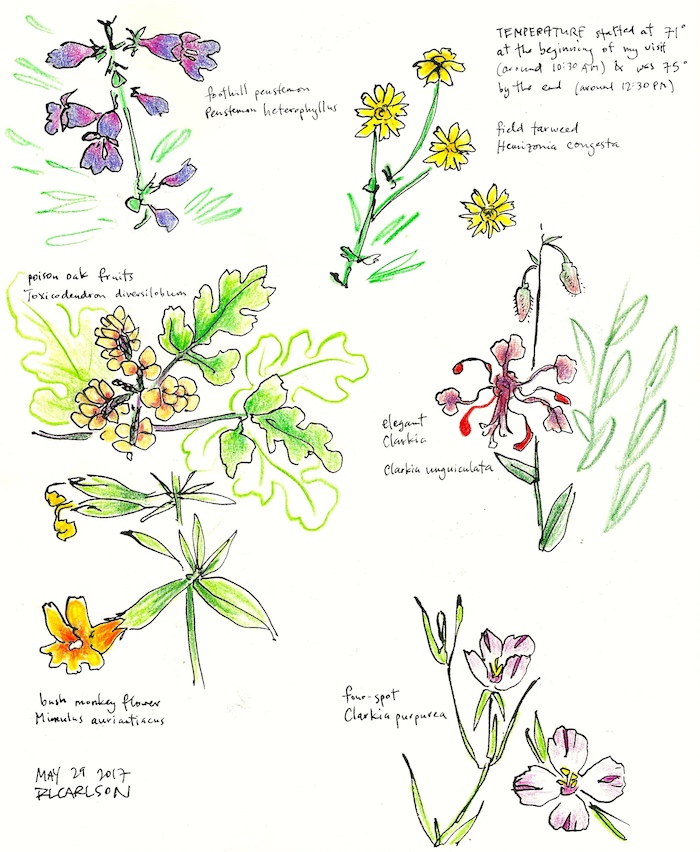 TEMPERATURE started at 71°
at the beginning of my visit
(around 10:30 AM) & was 75°
by the end (around 12:30 PM)
foothill penstemon
Penstemon heterophyllus
field tarweed
Hemizonia congesta
poison oak fruits
Toxicodendron diversilobum
elegant
Clarkia
Clarkia unguiculata
bush monkey flower
Mimulus auriantiacus
four-spot
Clarkia purpurea
MAY 29 2017
RLCARLSON